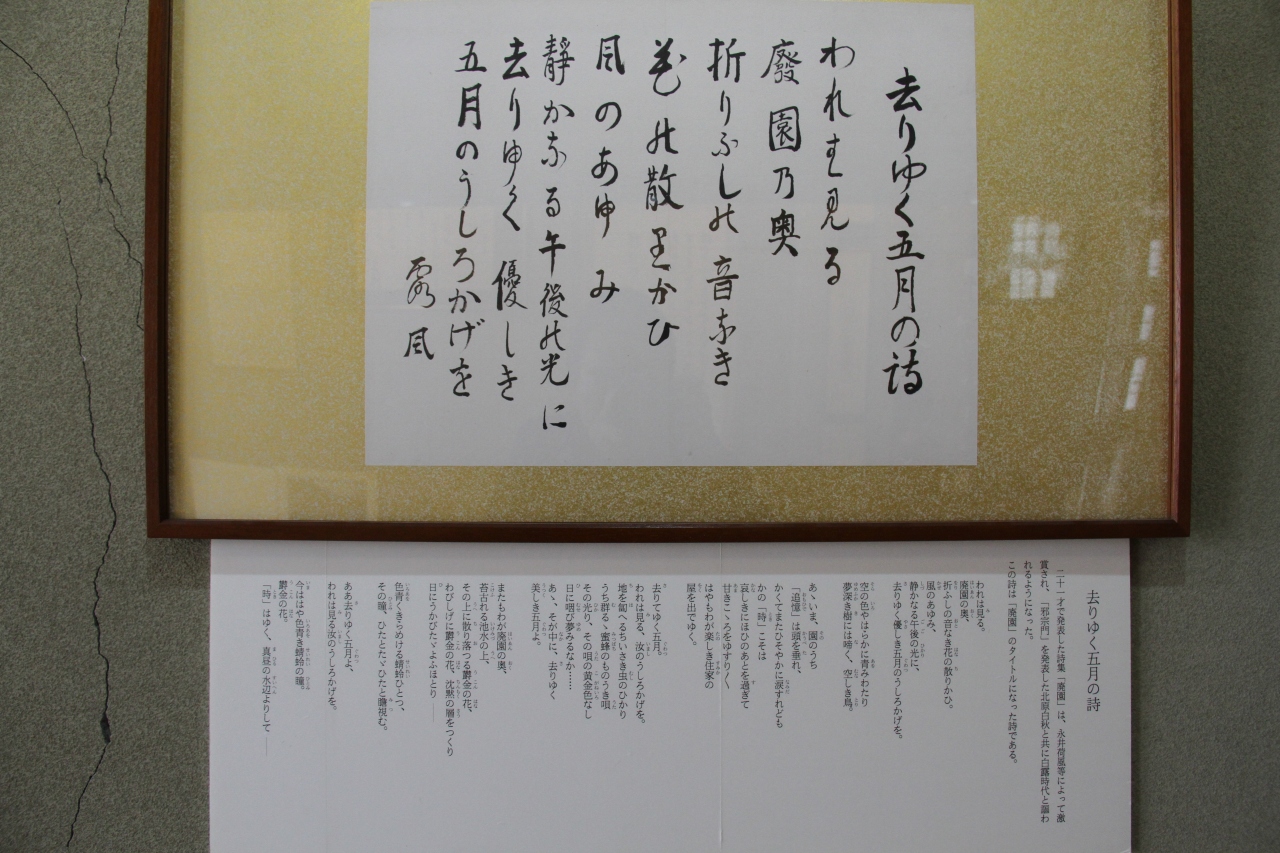 去りゆく五月の詩
われは見る
廢園乃奥
折りふしの音なき
花の散りかひ
風のあゆみ
静かなる午後の光に
去りゆく優しき
五月のうしろかげを
露風
去りゆく五月の詩
二十一才で発表した詩集「廃園」は、永井荷風等によって激
賞され、「邪宗門」を発表した北原白秋と共に白露時代と謳わ
れるようになった。
この詩は「廃園」のタイトルになった詩である。
われは見る。
廃園の奥、
折ふしの音なき花の散りかひ。
風のあゆみ、
静かなる午後の光に、
去りゆく優しき五月のうしろかげを。
空の色やはらかに青みわたり
夢深き樹には啼く、空しき鳥。
あゝいま、園のうち
「追憶」は頭を垂れ、
かくてまたひそやかに涙すれども
かの「時」こそは
哀しきにほひのあとを過ぎて
甘きこゝろをゆすりゆすり
はやもわが楽しき住家の
屋を出でゆく。
去りてゆく五月。
われは見る、汝のうしろかげを。
地を匐へるちいさき虫のひかり
うち群るゝ蜜蜂のものうき唄
その光り、その唄の黄金色なし
日に咽び夢みるなか……
あゝ、そが中に、去りゆく
美しき五月よ。
またもわが廃園の奥、
苔古れる池水の上、
その上に散り落つる鬱金の花、
わびしげに鬱金の花、沈黙の層をつくり
日にうかびたゞよふほとり――
色青くきらめける蜻蛉ひとつ、
その瞳、ひたとたゞひたと瞻視む。
ああ去りゆく五月よ、
われは見る汝のうしろかげを。
今ははや色青き蜻蛉の瞳。
鬱金の花。
「時」はゆく、真昼の水辺よりして――